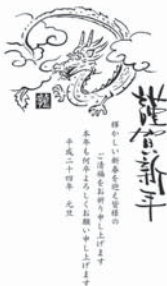 謹賀新年
輝かしい新春を迎え皆様の
ご清福をお祈り申し上げます
本年も何卒よろしくお願い申し上げます
平成二十四年　元旦